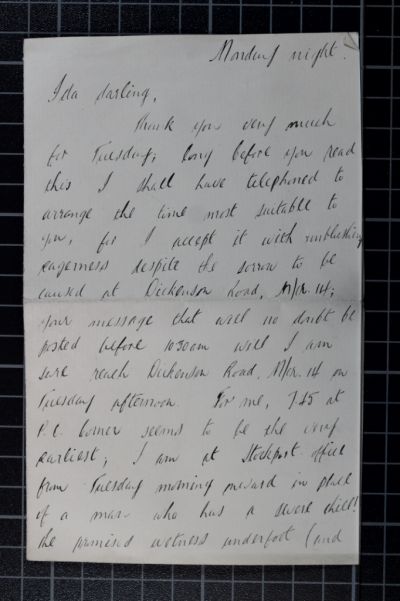 Monday night.
Ida darling,
Thank you very much
for Tuesday; long before you read
this I shall have telephoned to
arrange the time most suitable to
you, for I accept it with unblushing
eagerness despite the sorrow to be
caused at Dickenson Road, M/cr. 14;
your message that will no doubt be
posted before 10.30am will I am
sure reach Dickenson Road, M/cr. 14 on
Tuesday afternoon. For me, 7.45 at
P.C. Corner seems to be the very
earliest; I am at Stockport office
from Tuesday morning onward in place
of a man who has a severe chill!
the promised wetness underfoot (and